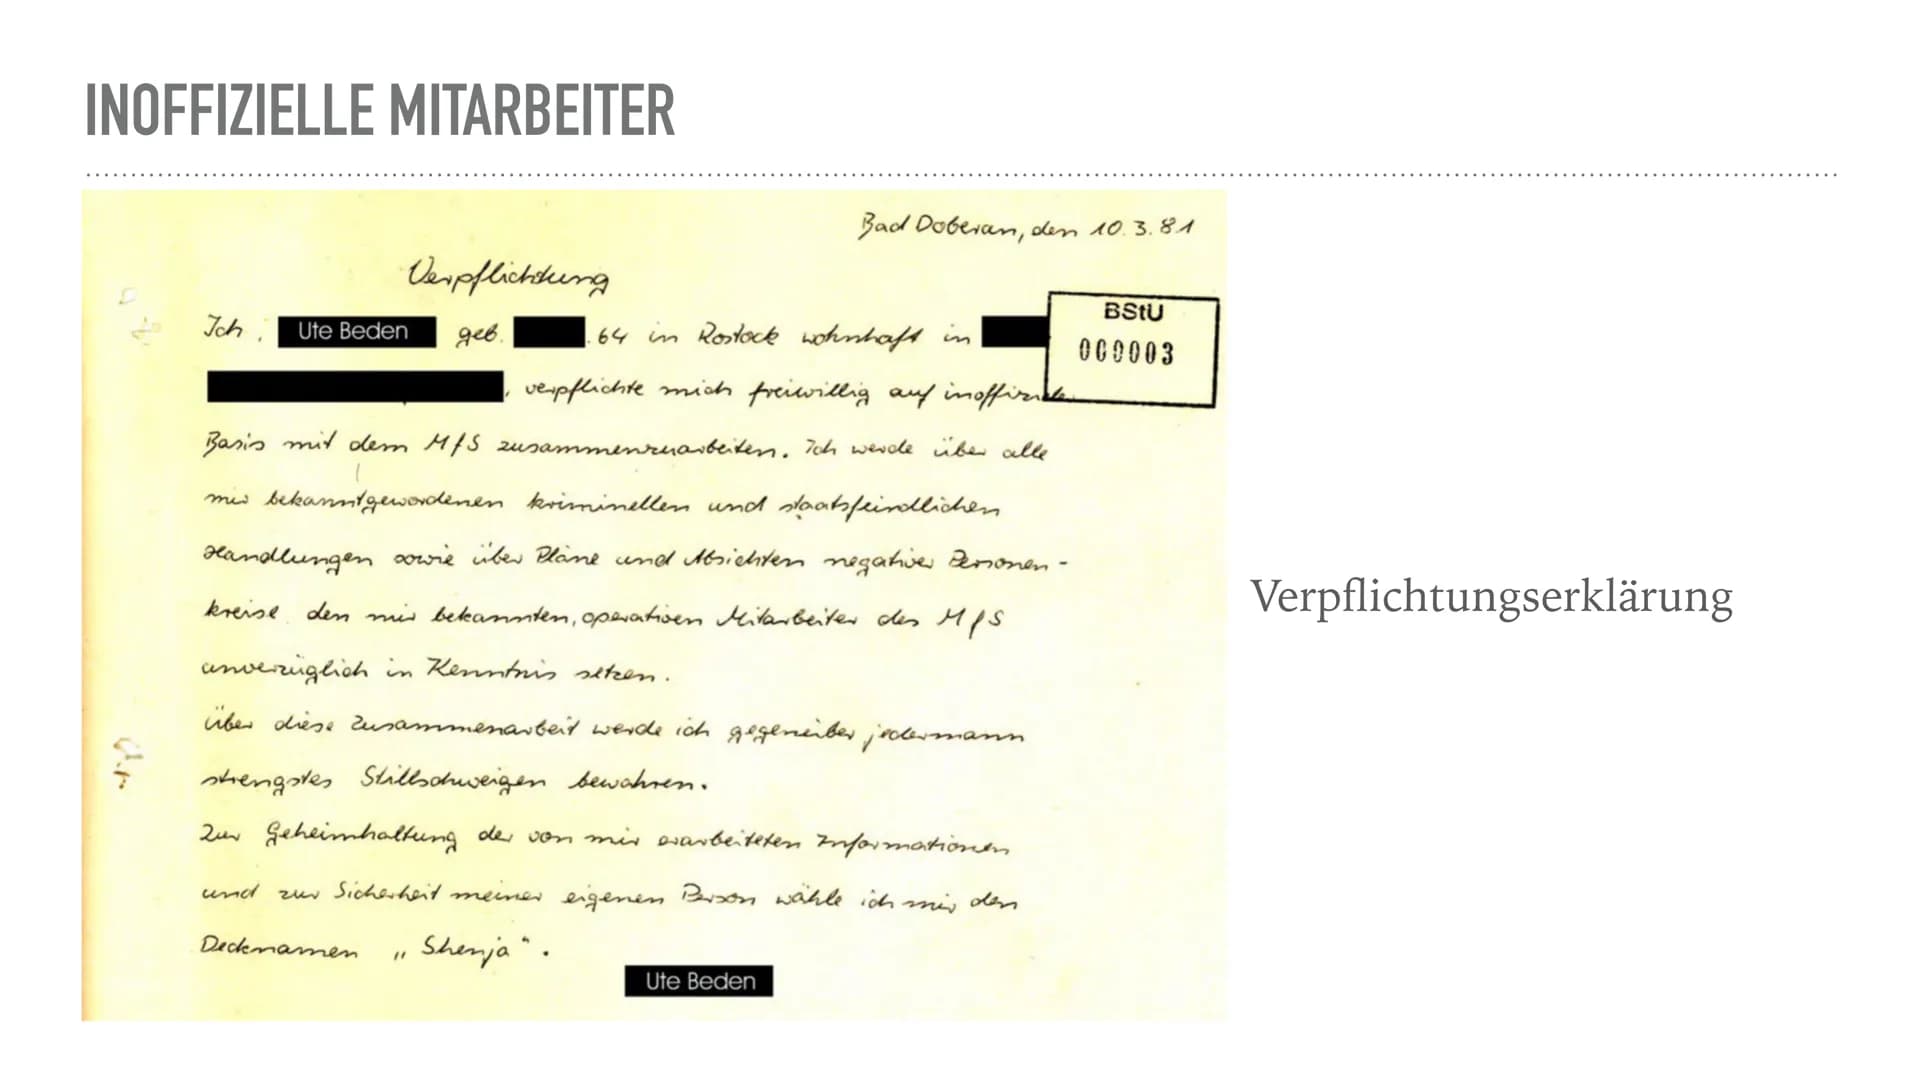 INOFFIZIELLE MITARBEITER
Bad Doberan, den 10.3.81
Verpflichtung
BStU
000003
Ich, Ute Beden geb. .64 in Rostock wohnhaft in
, verpflichte mich freiwillig auf inoffizielle
Basis mit dem MfS zusammenzuarbeiten. Ich werde über alle
mir bekanntgewordenen kriminellen und staatsfeindlichen
Handlungen sowie über Pläne und Absichten negativer Personen-
kreise den mir bekannten, operativen Mitarbeiter des MfS
unverzüglich in Kenntnis setzen.
Über diese Zusammenarbeit werde ich gegenüber jedermann
strengstes Stillschweigen bewahren.
Zur Geheimhaltung der von mir erarbeiteten Informationen
und zur Sicherheit meiner eigenen Person wähle ich mir den
Decknamen „Shenja“.
Ute Beden
Verpflichtungserklärung